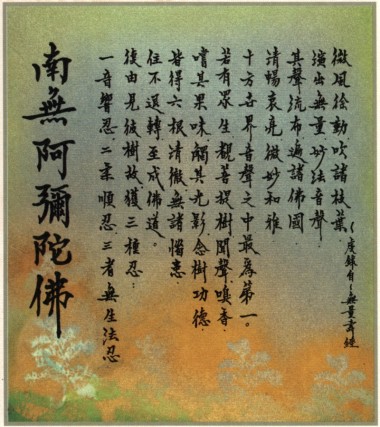 微風徐動吹諸枝葉
(虔錄自~無量壽經
演出無量妙法音聲
其聲流布遍諸佛國
清暢哀亮微妙和雅
十方世界音聲之中最為第一。
若有眾生覩菩提樹聞聲嗅香、
嚐其果味觸其光影念樹功德、
皆得六根清徹無諸惱患
住不退轉至成佛道。
復由見彼樹故獲三種忍:
一音響忍二柔順忍三者無生法忍
南無阿彌陀佛